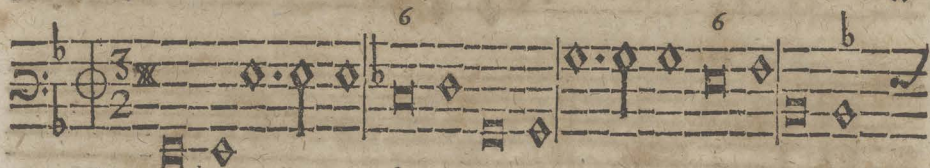 6 6 b
3
2